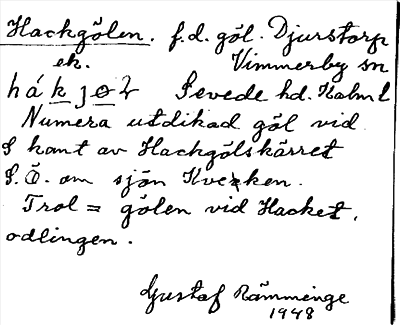 Hackgölen. f.d. göl. Djurstorp
ek. Vimmerby sn
hákjɵl Sevede hd. Kalm l
Numera utdikad göl vid
S kant av Hackgölskärret
S.Ö. om sjön Kvecken.
Trol = gölen vid Hacket,
odlingen.
Gustaf Rämminge
1948